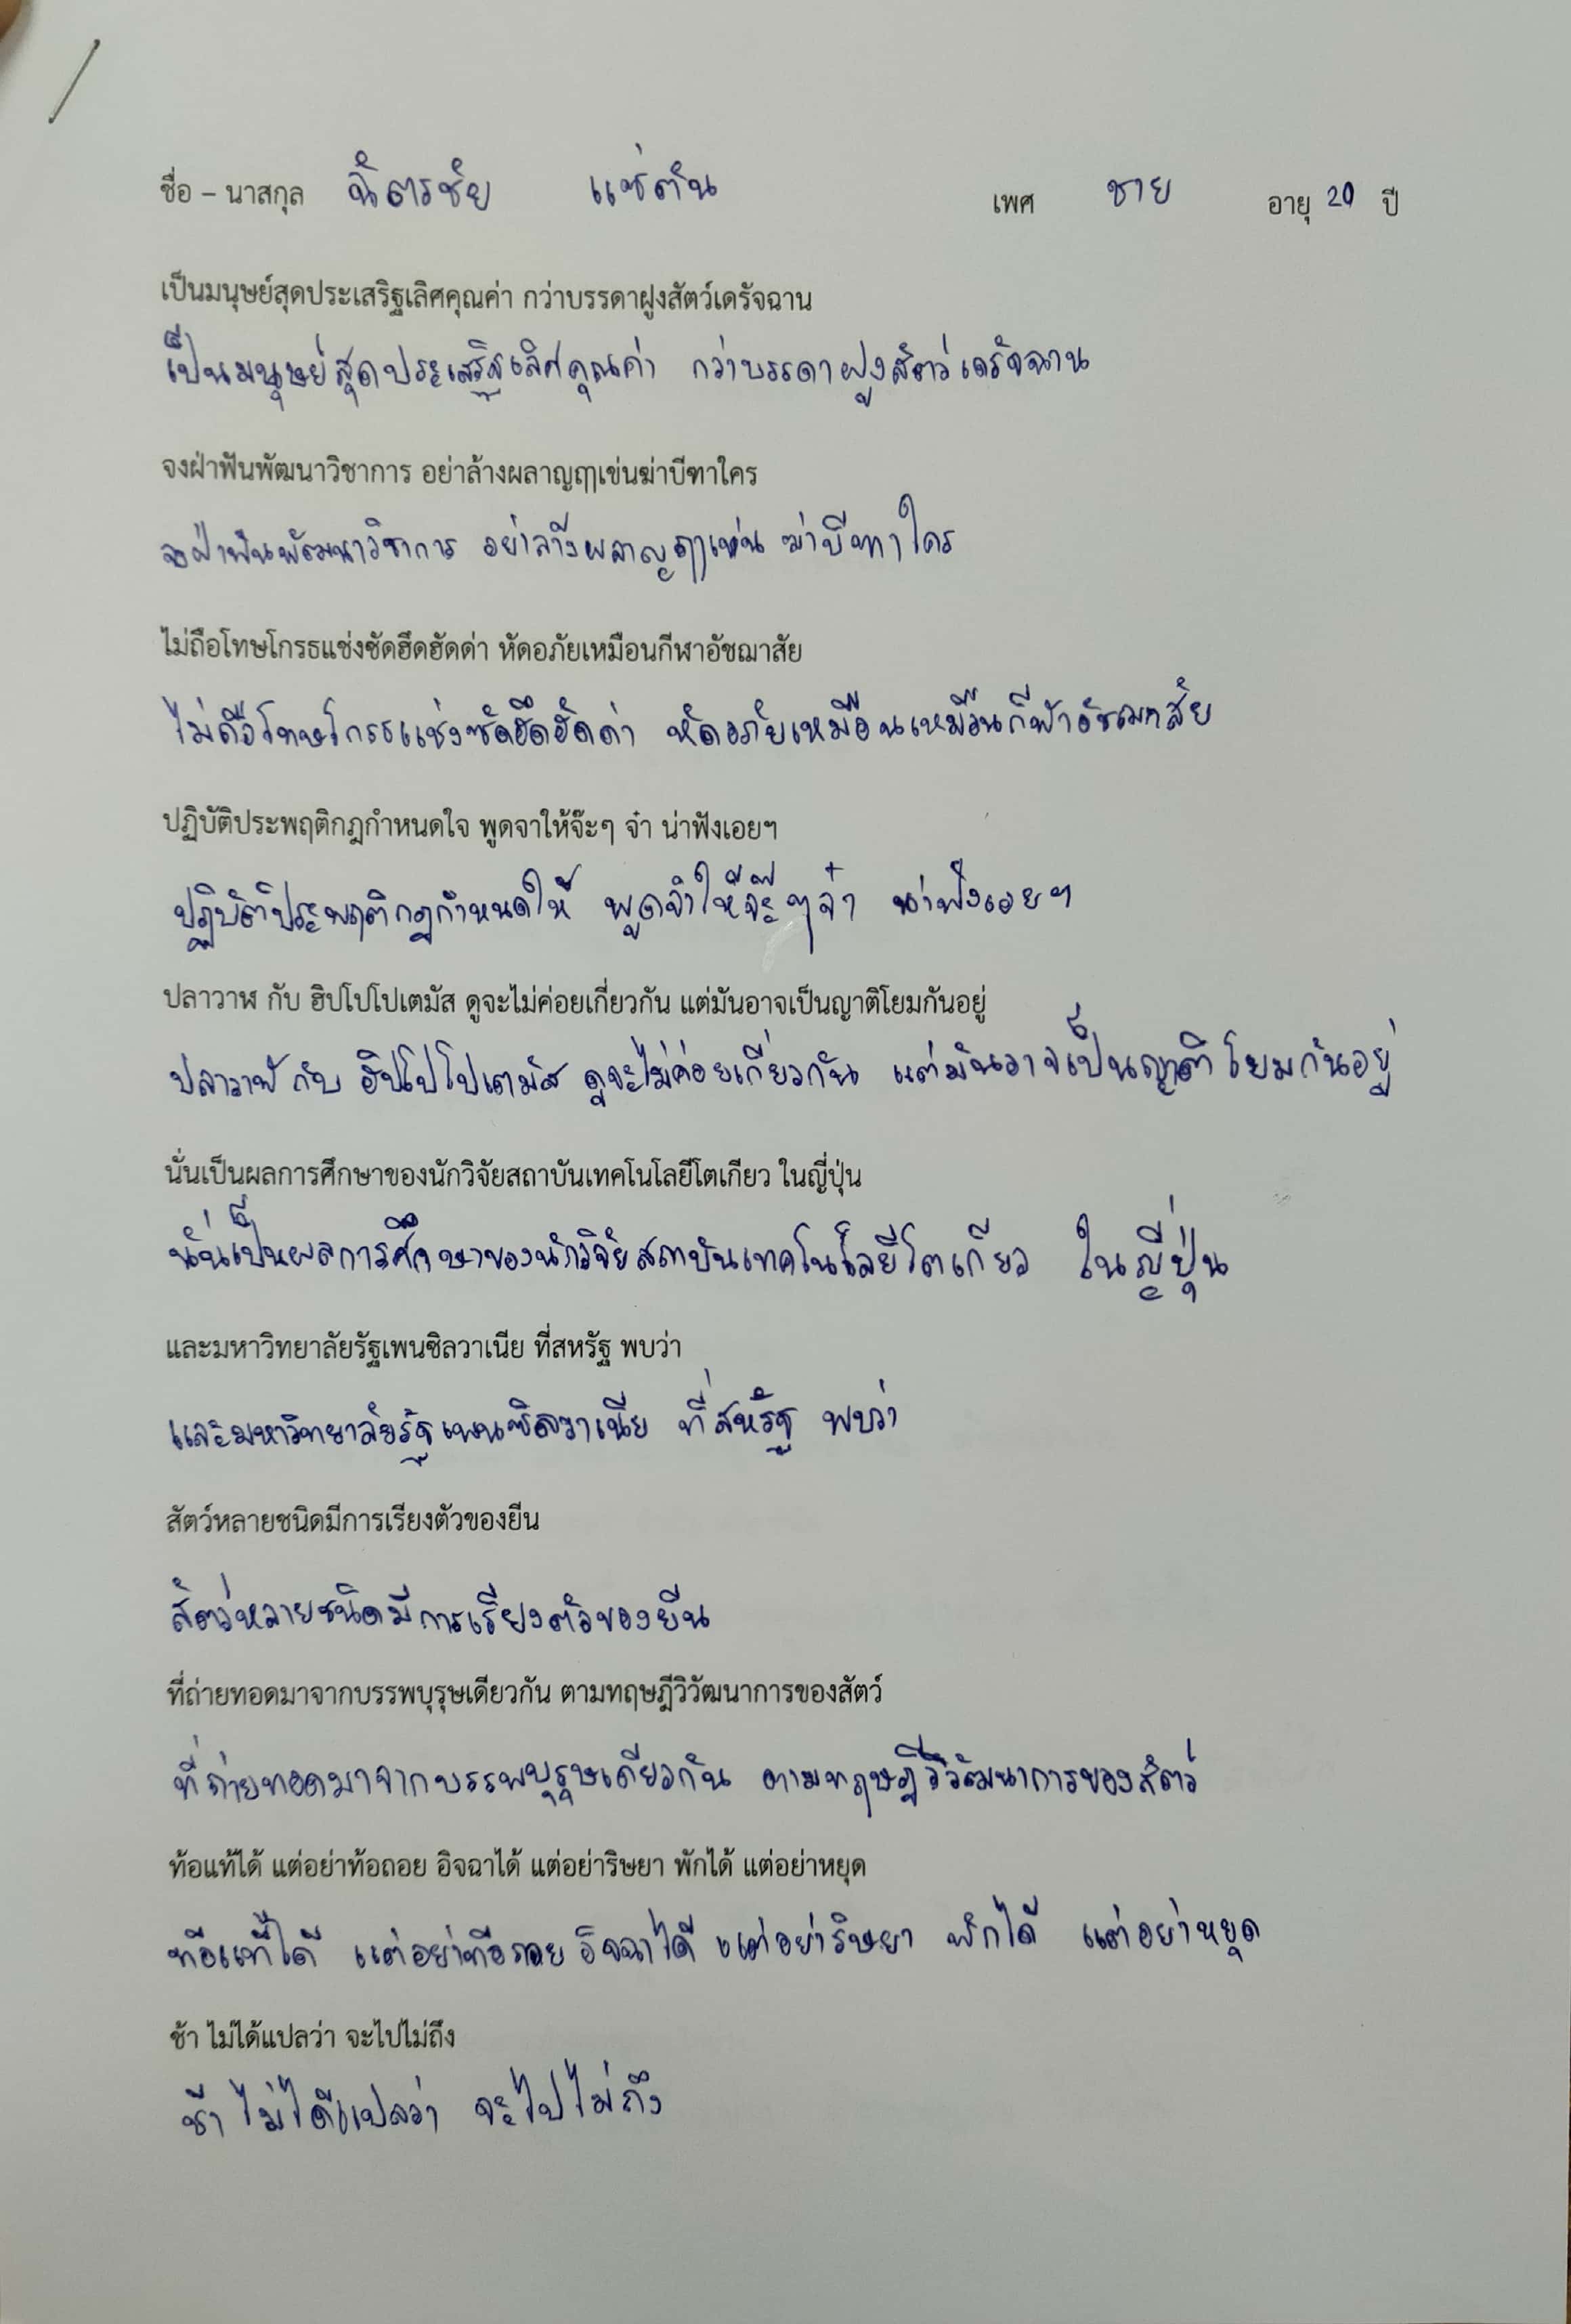 ชื่อ – นาสกุล ฉัตรชัย แซ่ตัน เพศ ชาย อายุ 20 ปี
เป็นมนุษย์สุดประเสริฐเลิศคุณค่า กว่าบรรดาฝูงสัตว์เดรัจฉาน
เป็นมนุษย์สุดประเสริฐเลิศคุณค่า กว่าบรรดาฝูงสัตว์เดรัจฉาน
จงฝ่าฟันพัฒนาวิชาการ อย่าล้างผลาญฤๅเข่นฆ่าบีฑาใคร
จงฝ่าฟันพัฒนาวิชาการ อย่าล้างผลาญฤๅเข่น ฆ่าบีฑาใคร
ไม่ถือโทษโกรธแช่งซัดฮึดฮัดด่า หัดอภัยเหมือนกีฬาอัชฌาสัย
ไม่ถือโทษโกรธแช่งซัดฮึดฮัดด่า หัดอภัยเหมือนเหมือนกีฬาอัชฌาสัย
ปฏิบัติประพฤติกฎกำหนดใจ พูดจาให้จ๊ะๆ จ๋า น่าฟังเอยฯ
ปฏิบัติประพฤติกฎกำหนดให้ พูดจำให้จ๊ะๆจ๋า น่าฟังเอยฯ
ปลาวาฬ กับ ฮิปโปโปเตมัส ดูจะไม่ค่อยเกี่ยวกัน แต่มันอาจเป็นญาติโยมกันอยู่
ปลาวาฬ กับ ฮิปโปโปเตมัส ดูจะไม่ค่อยเกี่ยวกัน แต่มันอาจเป็นญาติโยมกันอยู่
นั่นเป็นผลการศึกษาของนักวิจัยสถาบันเทคโนโลยีโตเกียว ในญี่ปุ่น
นั่นเป็นผลการศึกษาของนักวิจัยสถาบันเทคโนโลยีโตเกียว ในญี่ปุ่น
และมหาวิทยาลัยรัฐเพนซิลวาเนีย ที่สหรัฐ พบว่า
และมหาวิทยาลัยรัฐเพนซิลวาเนีย ที่สหรัฐ พบว่า
สัตว์หลายชนิดมีการเรียงตัวของยีน
สัตว์หลายชนิดมีการเรียงตัวของยีน
ที่ถ่ายทอดมาจากบรรพบุรุษเดียวกัน ตามทฤษฎีวิวัฒนาการของสัตว์
ที่ถ่ายทอดมาจากบรรพบุรุษเดียวกัน ตามทฤษฎีวิวัฒนาการของสัตว์
ท้อแท้ได้ แต่อย่าท้อถอย อิจฉาได้ แต่อย่าริษยา พักได้ แต่อย่าหยุด
ท้อแท้ได้ แต่อย่าท้อถอย อิจฉาได้ แต่อย่าริษยา พักได้ แต่อย่าหยุด
ช้า ไม่ได้แปลว่า จะไปไม่ถึง
ช้า ไม่ได้แปลว่า จะไปไม่ถึง